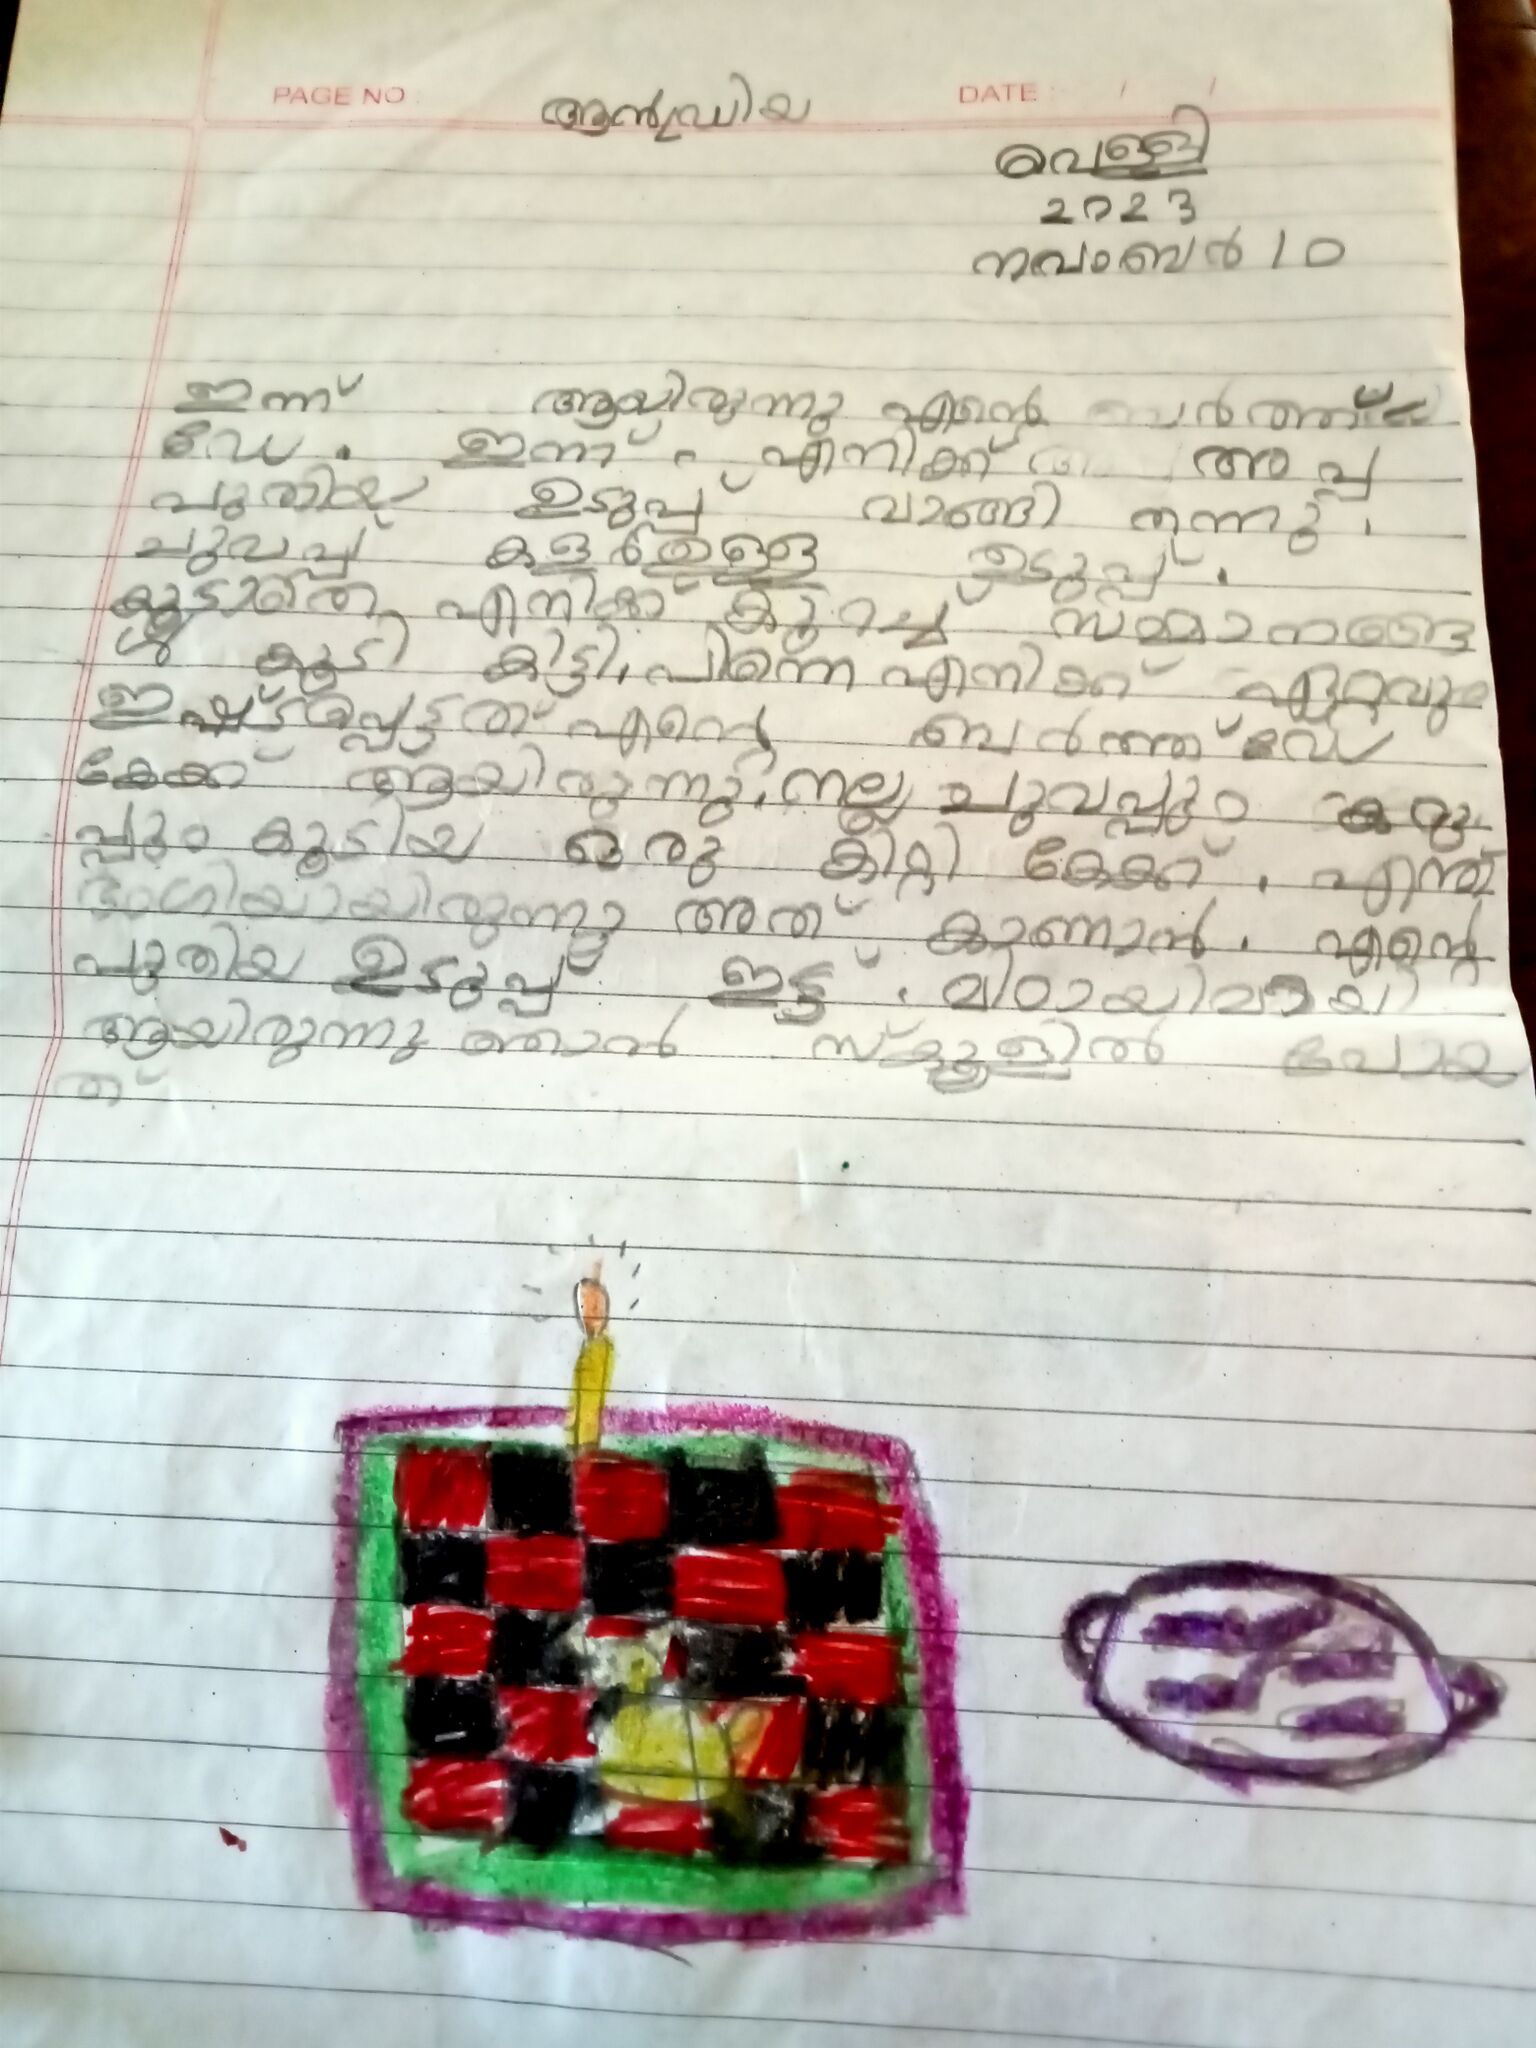 PAGE NO :
ആൻഡ്രിയ
DATE : / /
വെള്ളി
2023
നവംബർ 10
ഇന്ന് ആയിരുന്നു എന്റെ ബർത്ത്
ഡേ. ഇന്ന് എനിക്ക് അപ്പ
പുതിയ ഉടുപ്പ് വാങ്ങി തന്നു.
ചുവപ്പ് കളർള്ള ഉടുപ്പ്.
കൂടാതെ എനിക്ക് കുറച്ച് സമ്മാനങ്ങ
ൾ കൂടി കിട്ടി. പിന്നെ എനിക്ക് ഏറ്റവും
ഇഷ്ടപ്പെട്ടത് എന്റെ ബർത്ത് ഡേ
കേക്ക് ആയിരുന്നു. നല്ല ചുവപ്പും കറു
പ്പും കൂടിയ ഒരു കിറ്റി കേക്ക്. എന്ത്
ഭംഗിയായിരുന്നു അത് കാണാൻ. എന്റെ
പുതിയ ഉടുപ്പ് ഇട്ട്. മിഠായിയായി
ആയിരുന്നു ഞാൻ സ്കൂളിൽ പോയ
ത്